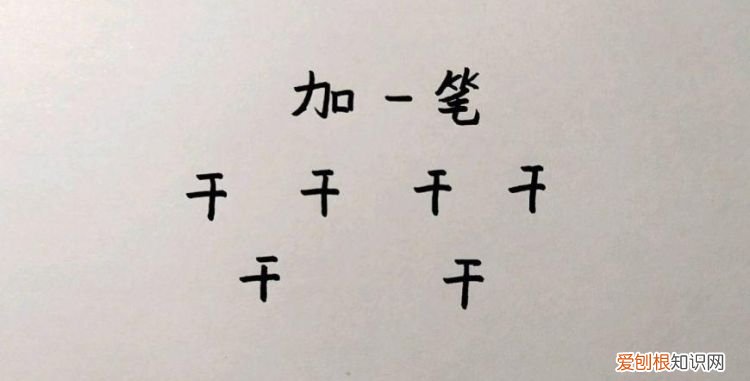 加一笔
干 干 干 干
干 干
爱刨根知识网